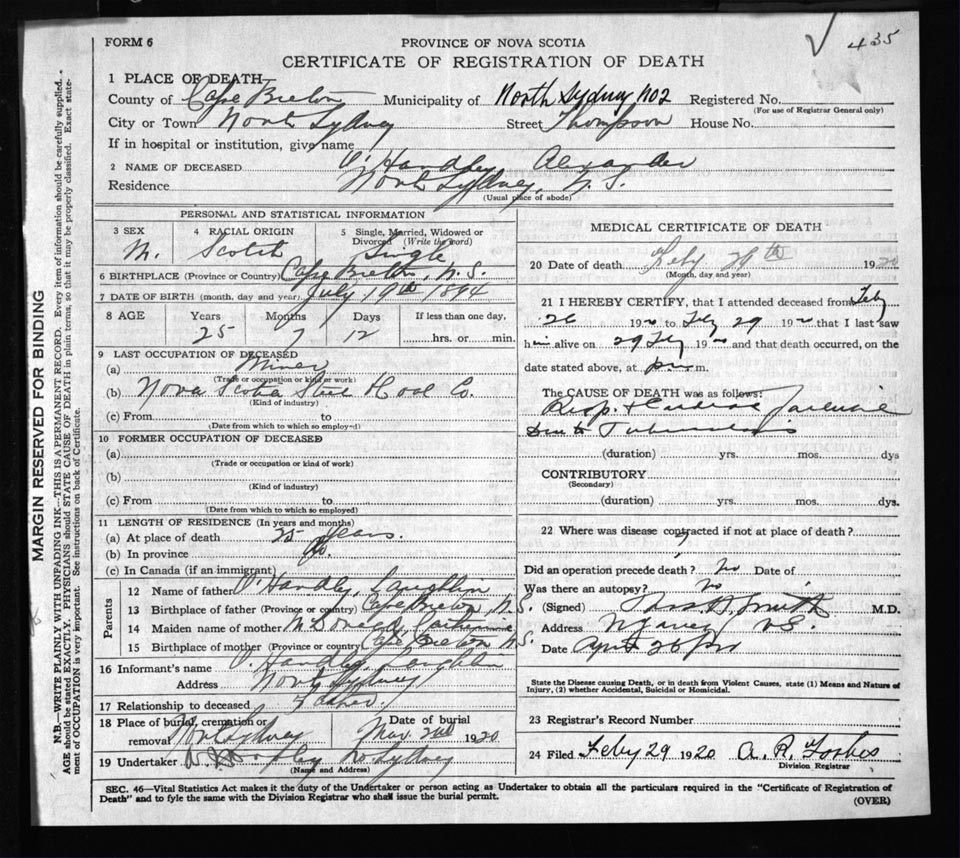 435
FORM 6
PROVINCE OF NOVA SCOTIA
CERTIFICATE OF REGISTRATION OF DEATH
MARGIN RESERVED FOR BINDING
N.B.—WRITE PLAINLY WITH UNFADING INK—THIS IS A PERMANENT RECORD. Every item of information should be carefully supplied.
AGE should be stated EXACTLY. PHYSICIANS should STATE CAUSE OF DEATH in plain terms, so that it may be properly classified. Exact state-
ment of OCCUPATION is very important. See instructions on back of Certificate.
1 PLACE OF DEATH
County of Cape Breton Municipality of North Sydney No2 Registered No.
(For use of Registrar General only)
City or Town North Sydney Street Thompson House No.
If in hospital or institution, give name
2 NAME OF DECEASED O'Handley Alexander
Residence North Sydney, N.S.
(Usual place of abode)
PERSONAL AND STATISTICAL INFORMATION
3 SEX M. 4 RACIAL ORIGIN Scotch 5 Single, Married, Widowed or Divorced (Write the word) Single
6 BIRTHPLACE (Province or Country) Cape Breton, N.S.
7 DATE OF BIRTH (month, day and year) July 19th 1894
8 AGE Years Months Days If less than one day,
25 7 12 hrs. or min.
9 LAST OCCUPATION OF DECEASED
(a) Miner
(Trade or occupation or kind or work)
(b) Nova Scotia Steel & Coal Co.
(Kind of industry)
(c) From to
(Date from which to which so employed)
10 FORMER OCCUPATION OF DECEASED
(a)
(Trade or occupation or kind of work)
(b)
(Kind of industry)
(c) From to
(Date from which to which so employed)
11 LENGTH OF RESIDENCE (In years and months)
(a) At place of death 25 years.
(b) In province do
(c) In Canada (if an immigrant)
Parents
12 Name of father O'Handley, Laughlin
13 Birthplace of father (Province or country) Cape Breton, N.S.
14 Maiden name of mother McDonald, Catherine
15 Birthplace of mother (Province or country) Cape Breton N.S.
16 Informant's name O'Handley, Laughlin
Address North Sydney
17 Relationship to deceased Father
18 Place of burial, cremation or removal North Sydney Date of burial Mar. 2nd 1920
19 Undertaker No Sydney
(Name and Address)
MEDICAL CERTIFICATE OF DEATH
20 Date of death Feby 29th 1920
(Month, day and year)
21 I HEREBY CERTIFY, that I attended deceased from Feby
26 1920 to Feby 29 1920 that I last saw
him alive on 29 Feby 1920 and that death occurred, on the
date stated above, at p m.
The CAUSE OF DEATH was as follows:
Resp. & Cardiac Failure
Due to Tuberculosis
(duration) yrs. mos. dys
CONTRIBUTORY
(Secondary)
(duration) yrs. mos. dys.
22 Where was disease contracted if not at place of death?
Did an operation precede death? No Date of
Was there an autopsy? No
(Signed) Smith M.D.
Address N.S.
Date April 26
State the Disease causing Death, or in death from Violent Causes, state (1) Means and Nature of
Injury, (2) whether Accidental, Suicidal or Homicidal.
23 Registrar's Record Number
24 Filed Feby 29 1920 A. R. Forbes
Division Registrar
SEC. 46—Vital Statistics Act makes it the duty of the Undertaker or person acting as Undertaker to obtain all the particulars required in the "Certificate of Registration of
Death" and to fyle the same with the Division Registrar who shall issue the burial permit.
(OVER)